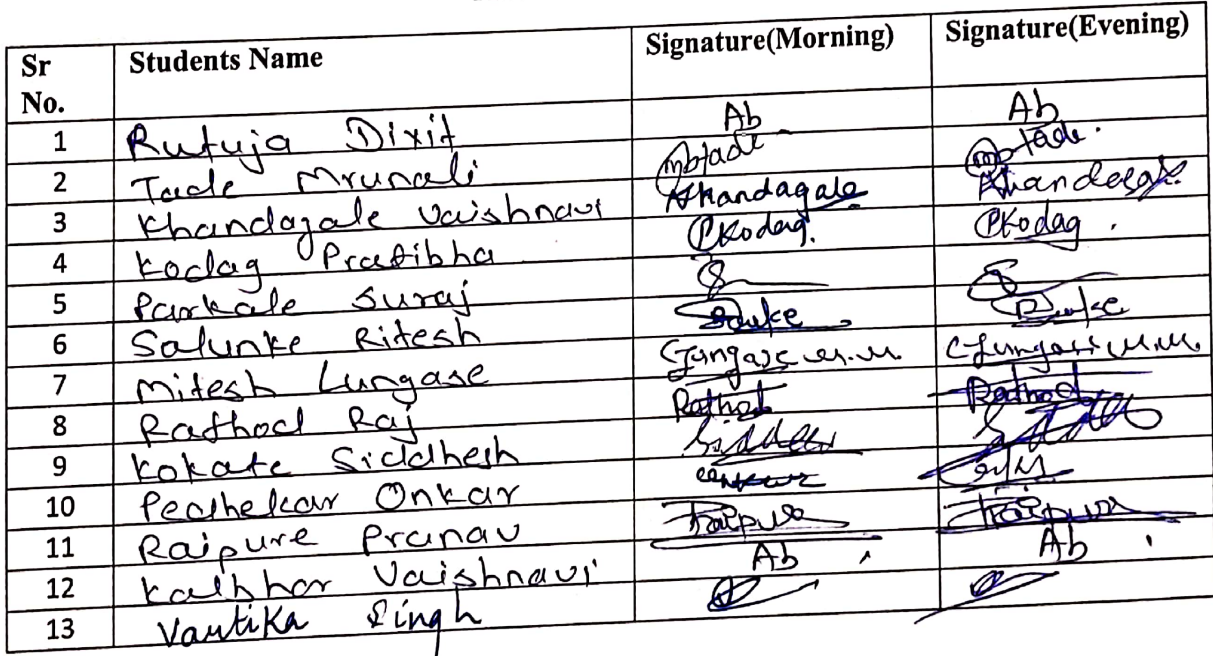 Sr No. Students Name Signature(Morning) Signature(Evening)
1 Rutuja Dixit Ab Ab
2 Tade Mrunali mbtade mbtade.
3 Khandagale Vaishnavi Khandagale
4 Kodag Pratibha PKodag. PKodag.
5 Parkale Suraj
6 Salunke Ritesh
7 Mitesh Lungase
8 Rathod Raj Rathod Rathod
9 Kokate Siddhesh
10 Pedhekar Onkar
11 Raipure Pranav
12 Kalbhor Vaishnavi Ab Ab
13 Vartika Singh